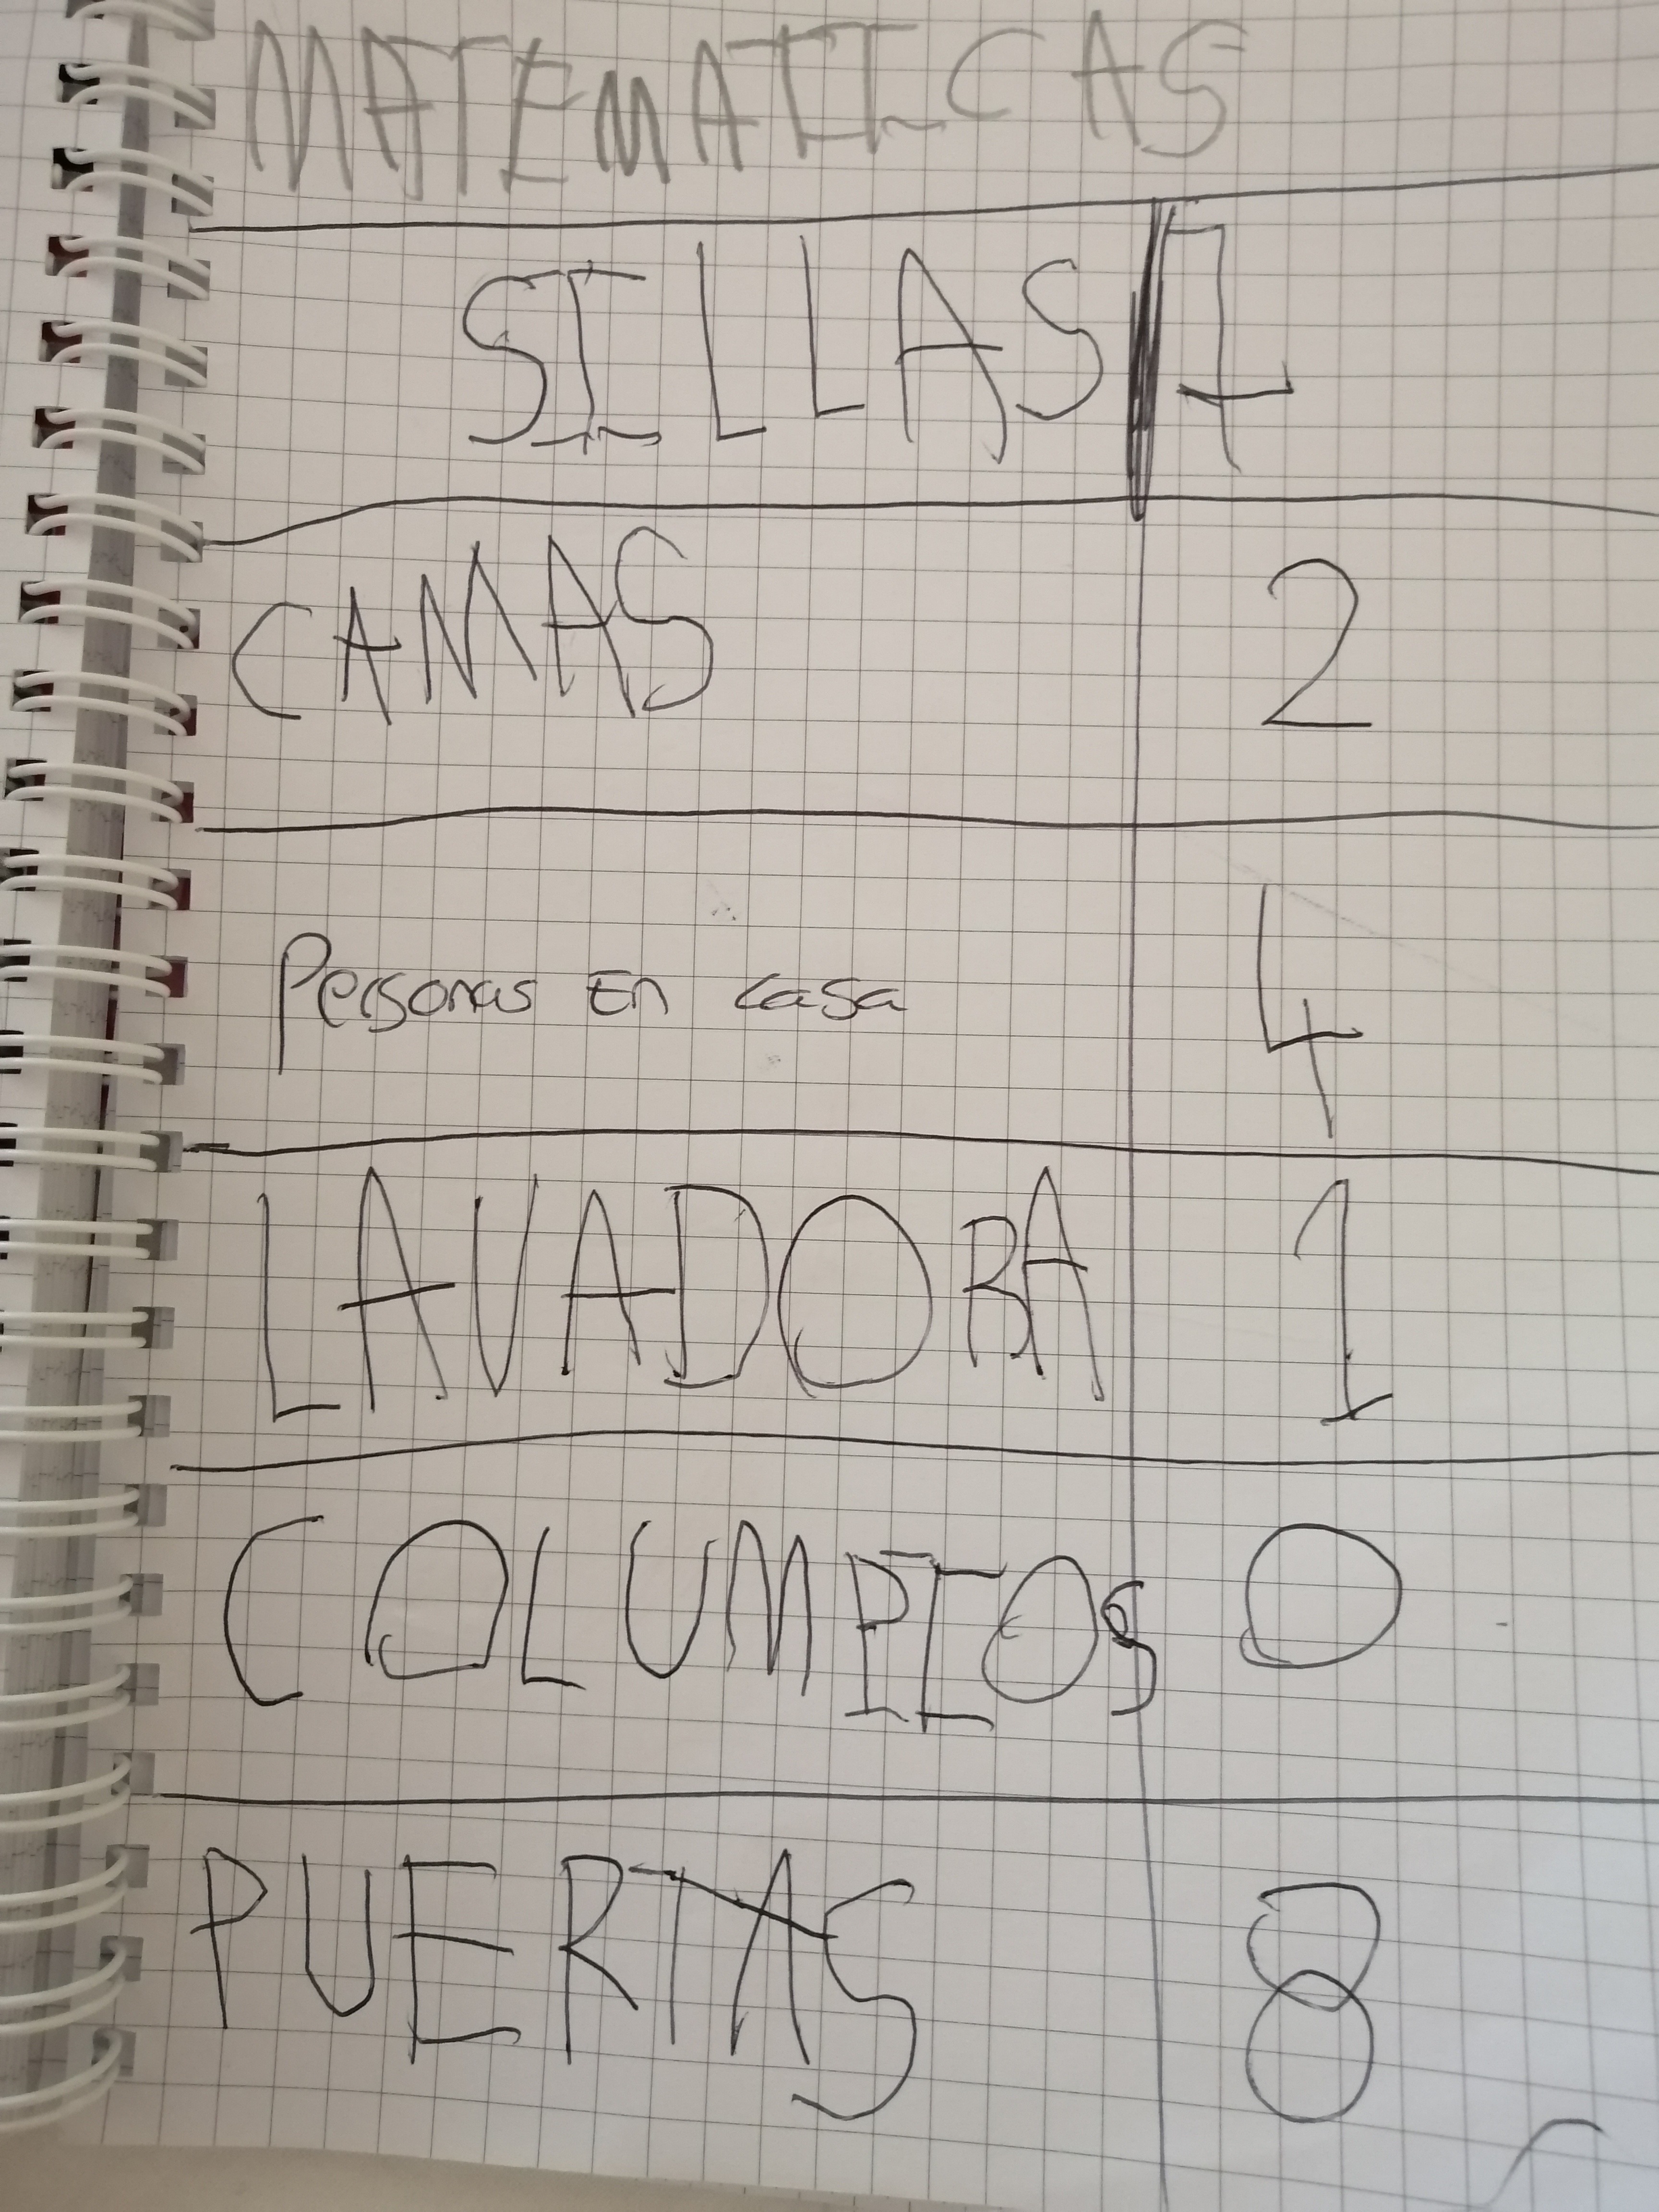 MATEMATICAS
SILLAS 7
CAMAS 2
Personas En casa 4
LAVADORA 1
COLUMPIOS 0
PUERTAS 8